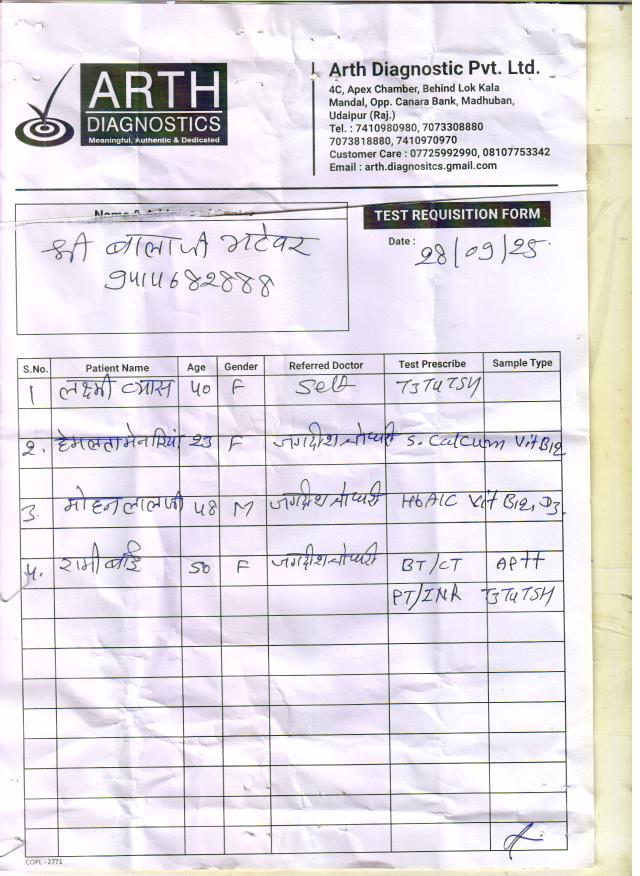 ARTH
DIAGNOSTICS
Meaningful, Authentic & Dedicated
Arth Diagnostic Pvt. Ltd.
4C, Apex Chamber, Behind Lok Kala
Mandal, Opp. Canara Bank, Madhuban,
Udaipur (Raj.)
Tel. : 7410980980, 7073308880
7073818880, 7410970970
Customer Care : 07725992990, 08107753342
Email : arth.diagnositcs.gmail.com
TEST REQUISITION FORM
श्री बालाजी भटेवर
9414682888
Date : 28/09/25
S.No. Patient Name Age Gender Referred Doctor Test Prescribe Sample Type
1 लक्ष्मी व्यास 40 F Self T3T4TSH
2. हेमलता मेनारियां 23 F जगदीश चौधरी S. Calcum Vit B12
3. मोहनलालजी 48 M जगदीश चौधरी HbA1C Vit B12, D3.
4. रामी बाई 50 F जगदीश चौधरी BT/CT APtt
PT/INR T3T4TSH
COPL - 2771